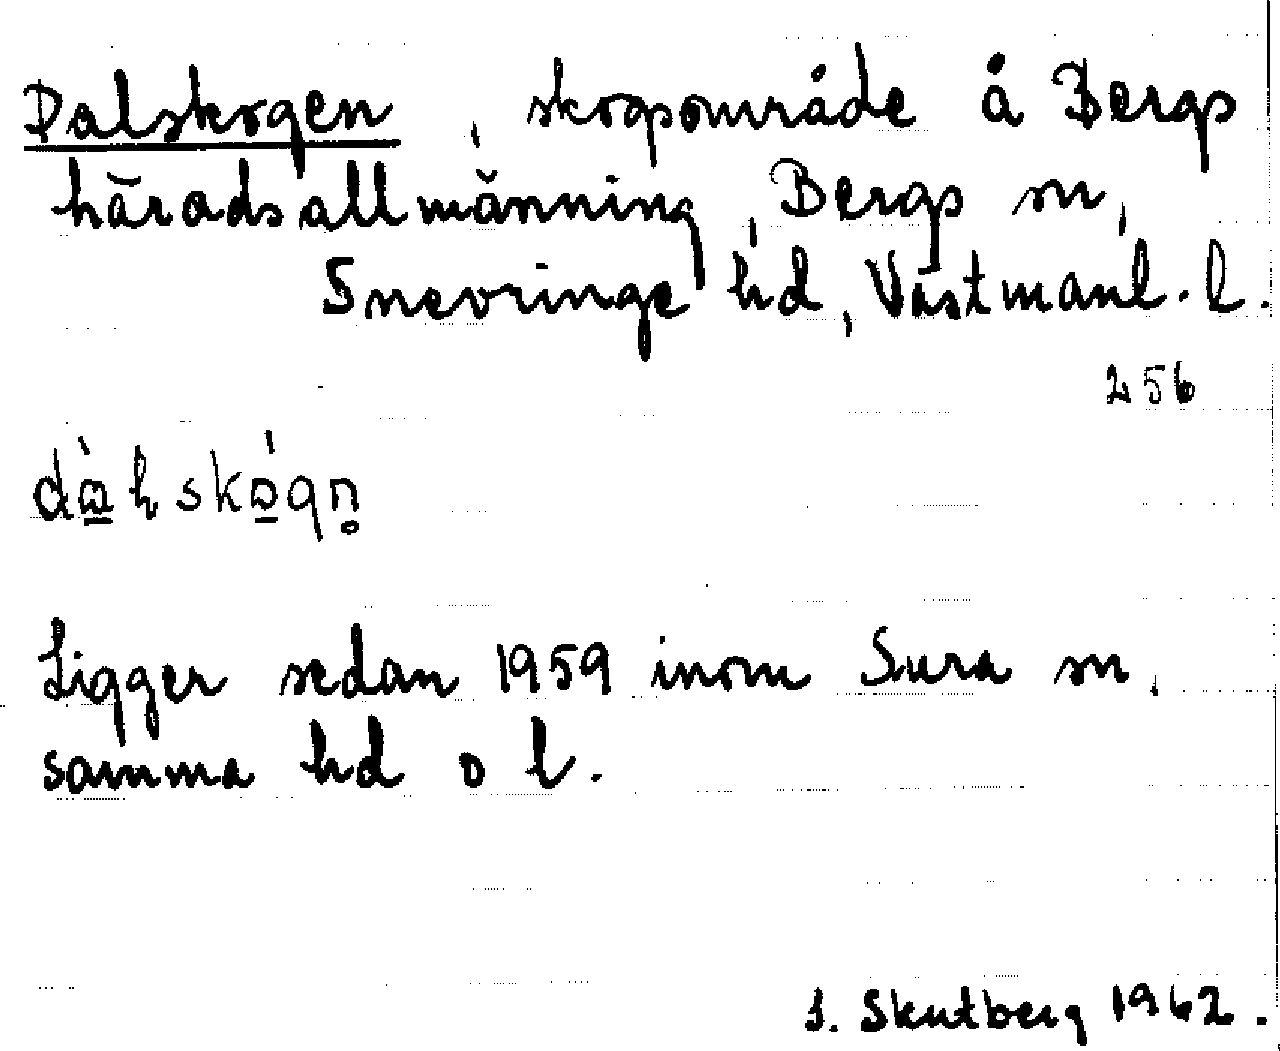 Dalskogen, skogsområde å Bergs
häradsallmänning, Bergs sn,
Snevringe hd, Västmanl. l.
256
Ligger sedan 1959 inom Sura sn,
samma hd o l.
J. Skutberg 1962.